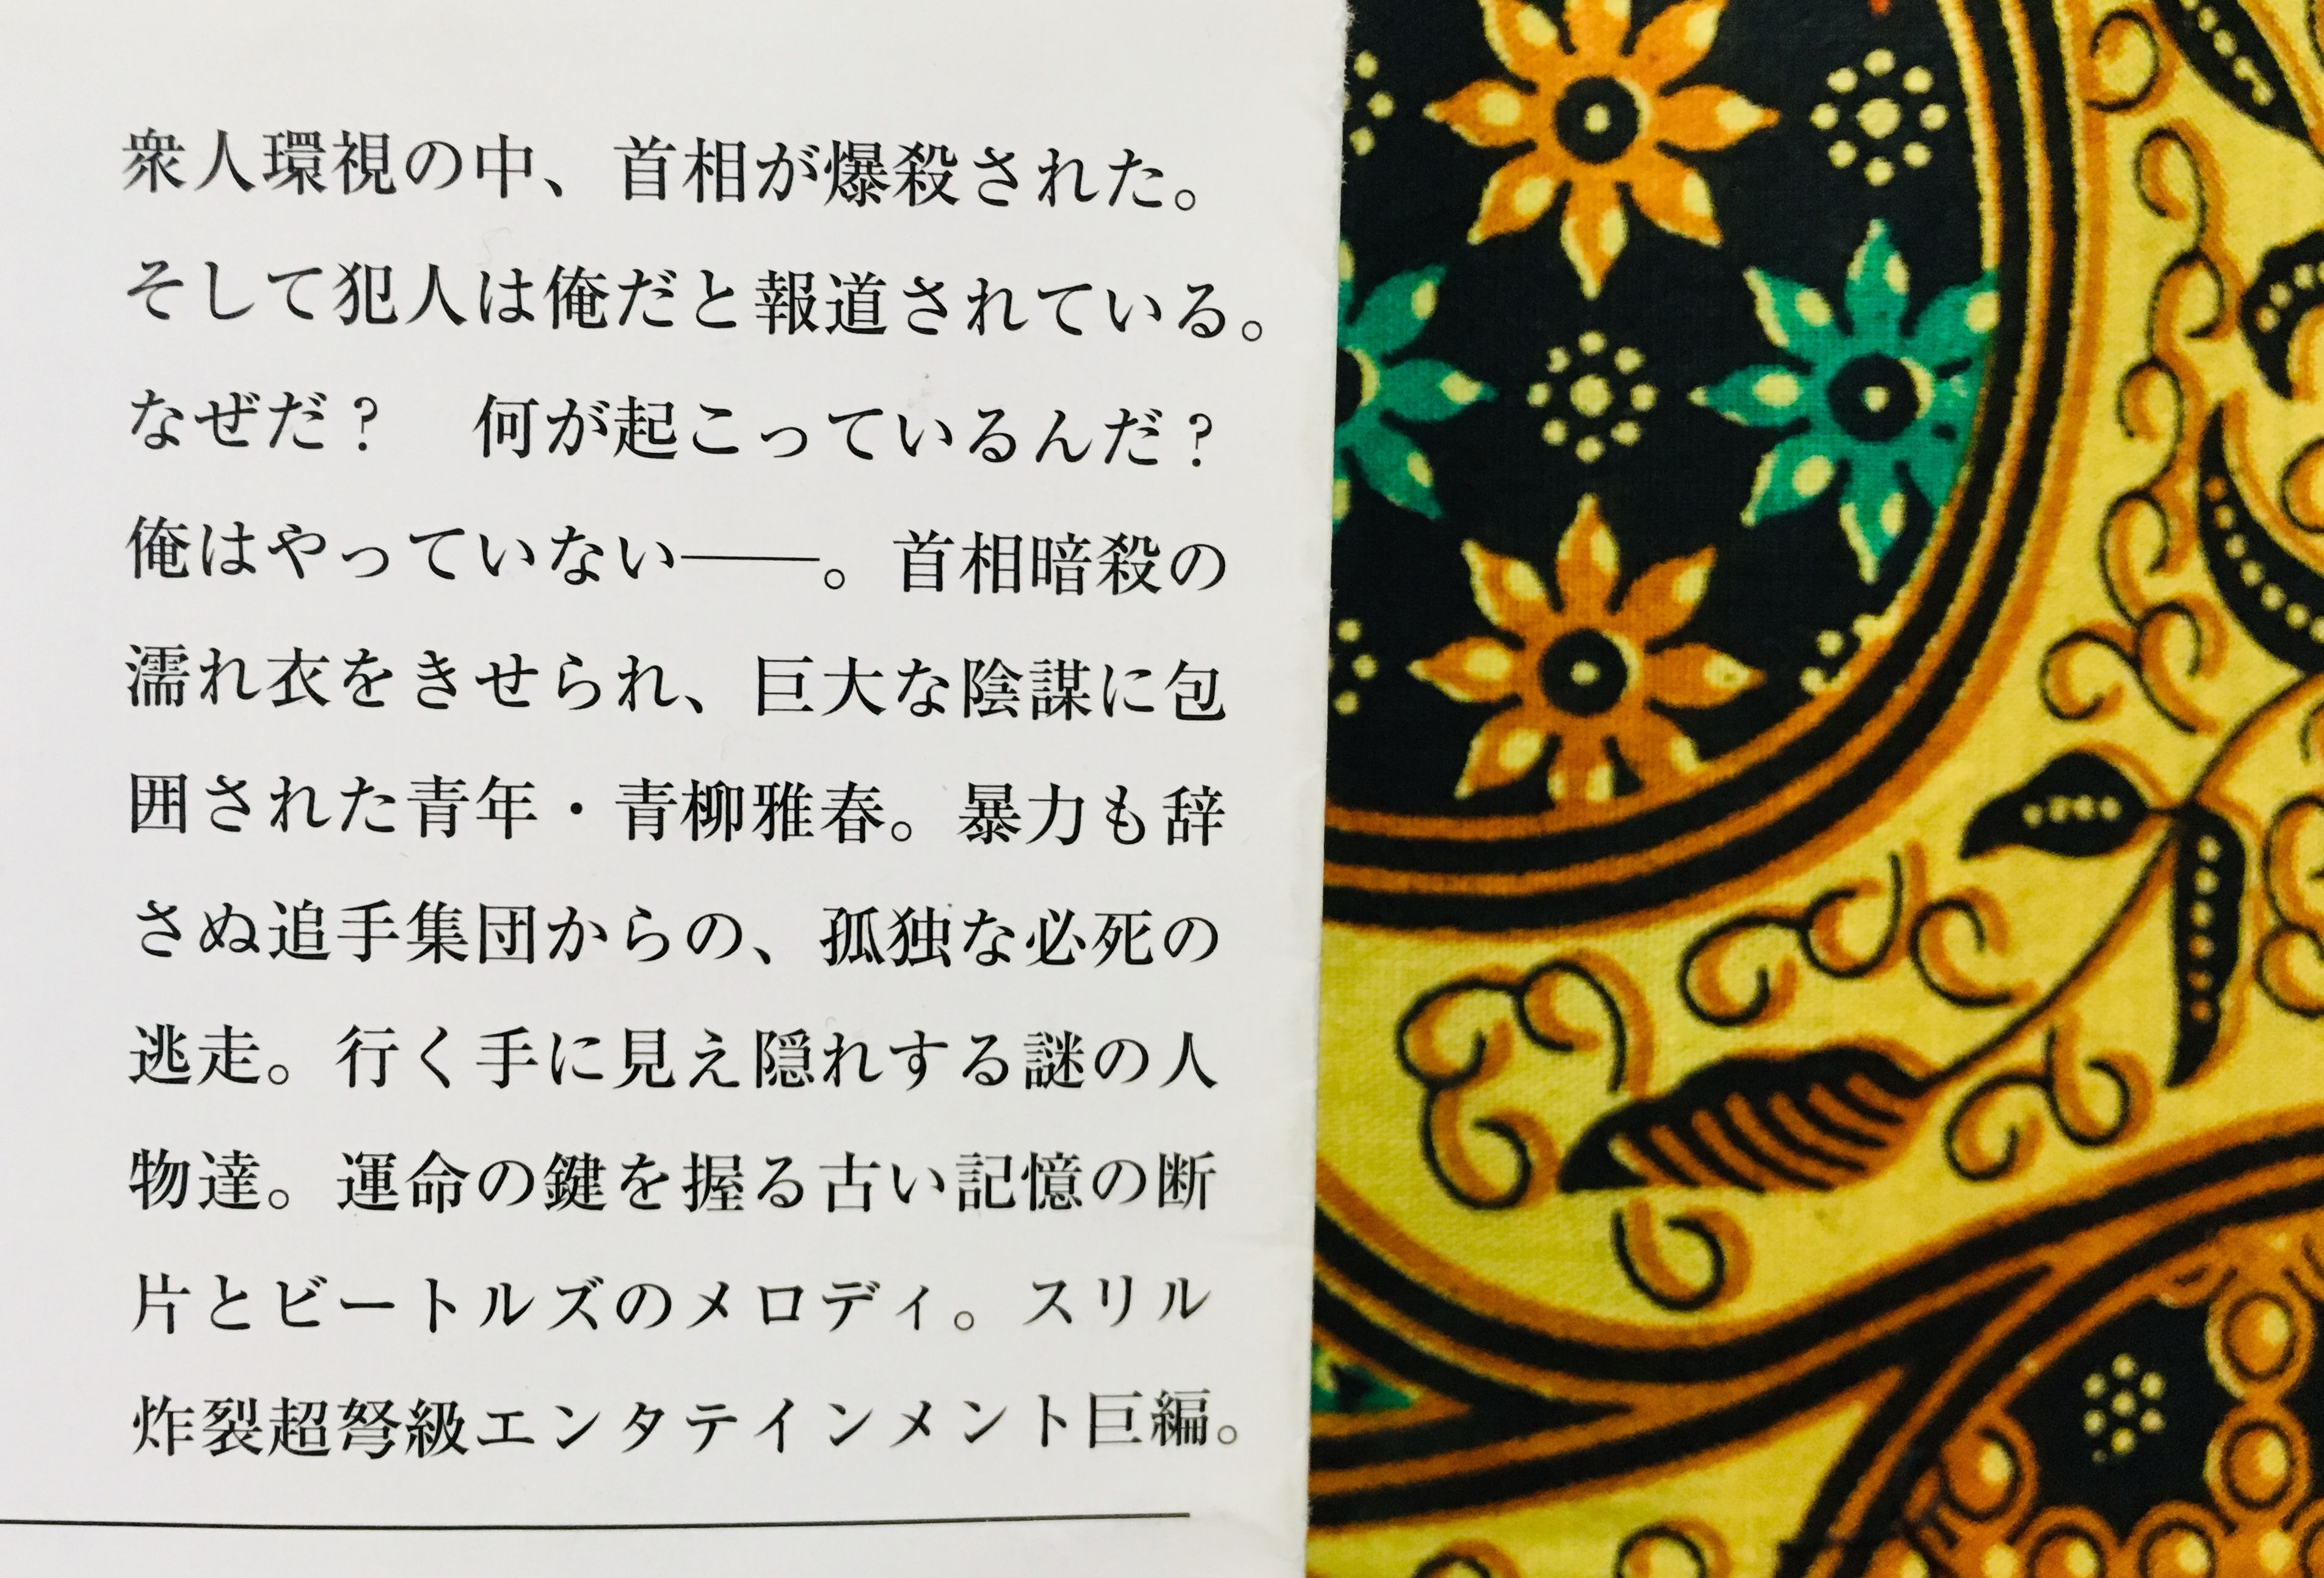 衆人環視の中、首相が爆殺された。
そして犯人は俺だと報道されている。
なぜだ？　何が起こっているんだ？
俺はやっていない――。首相暗殺の
濡れ衣をきせられ、巨大な陰謀に包
囲された青年・青柳雅春。暴力も辞
さぬ追手集団からの、孤独な必死の
逃走。行く手に見え隠れする謎の人
物達。運命の鍵を握る古い記憶の断
片とビートルズのメロディ。スリル
炸裂超弩級エンタテインメント巨編。